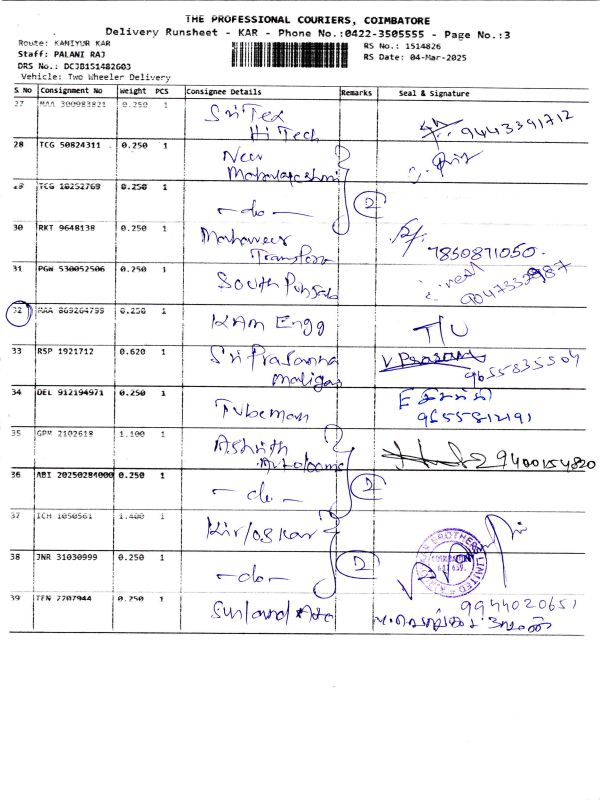 THE PROFESSIONAL COURIERS, COIMBATORE
Delivery Runsheet - KAR - Phone No.:0422-3505555 - Page No.:3
Route: KANIYUR KAR
Staff: PALANI RAJ
DRS No.: DCJB151482603
Vehicle: Two Wheeler Delivery
RS No.: 1514826
RS Date: 04-Mar-2025
S No Consignment No Weight PCS Consignee Details Remarks Seal & Signature
27 MAA 300983821 0.250 1 Sri Tex
Hi Tech 9443391712
28 TCG 50824311 0.250 1 Neer
29 TCG 10252769 0.250 1 - do - 2
30 RKT 9648138 0.250 1 Mahaveer
7850871050.
31 PGW 530052506 0.250 1 South Punjab
32 MAA 869264799 0.250 1 KAM Engg T/U
33 RSP 1921712 0.620 1 Sri Prasanna V. Prasanna
Maligai 9655835504
34 DEL 912194971 0.250 1 Tubeman
9655812191
35 GPM 2102618 1.100 1 Ashrith
9400154820
36 ABI 20250284000 0.250 1 - do - 2
37 ICH 1050561 1.400 1 Kirloskar
38 JNR 31030999 0.250 1 - do - 2
BROTHERS LIMITED
39 TEN 2207944 0.250 1 9944020651